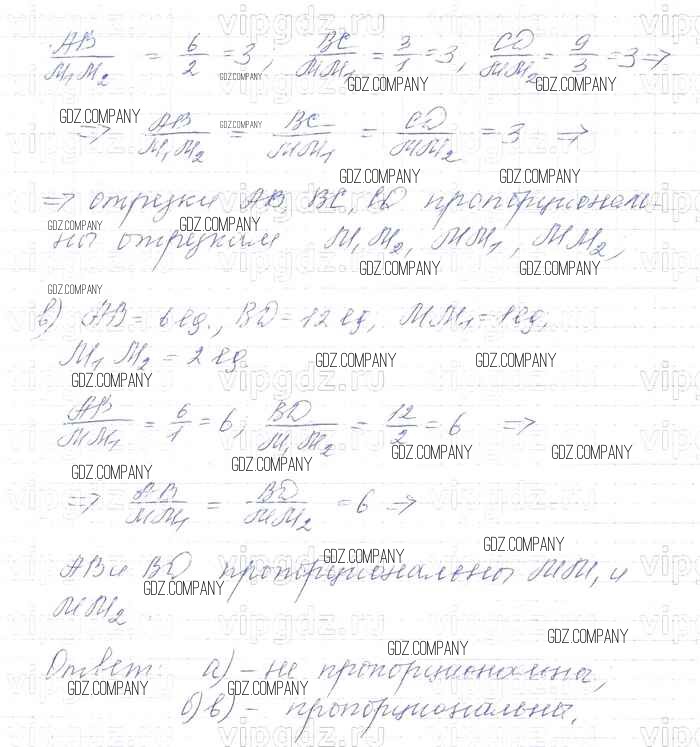 AB/M₁M₂ = 6/2 = 3, BC/MM₁ = 3/1 = 3, CD/MM₂ = 9/3 = 3 ⇒
⇒ AB/M₁M₂ = BC/MM₁ = CD/MM₂ = 3 ⇒
⇒ отрезки AB, BC, CD пропорционал-
ны отрезкам M₁M₂, MM₁, MM₂,
в) AB = 6 ед., BD = 12 ед, MM₁ = 1 ед,
M₁M₂ = 2 ед.
AB/MM₁ = 6/1 = 6, BD/M₁M₂ = 12/2 = 6 ⇒
⇒ AB/MM₁ = BD/MM₂ = 6 ⇒
AB и BD пропорциональны MM₁ и
MM₂.
Ответ: а) – не пропорциональны,
б) в) – пропорциональны.
GDZ.COMPANY
vipgdz.ru